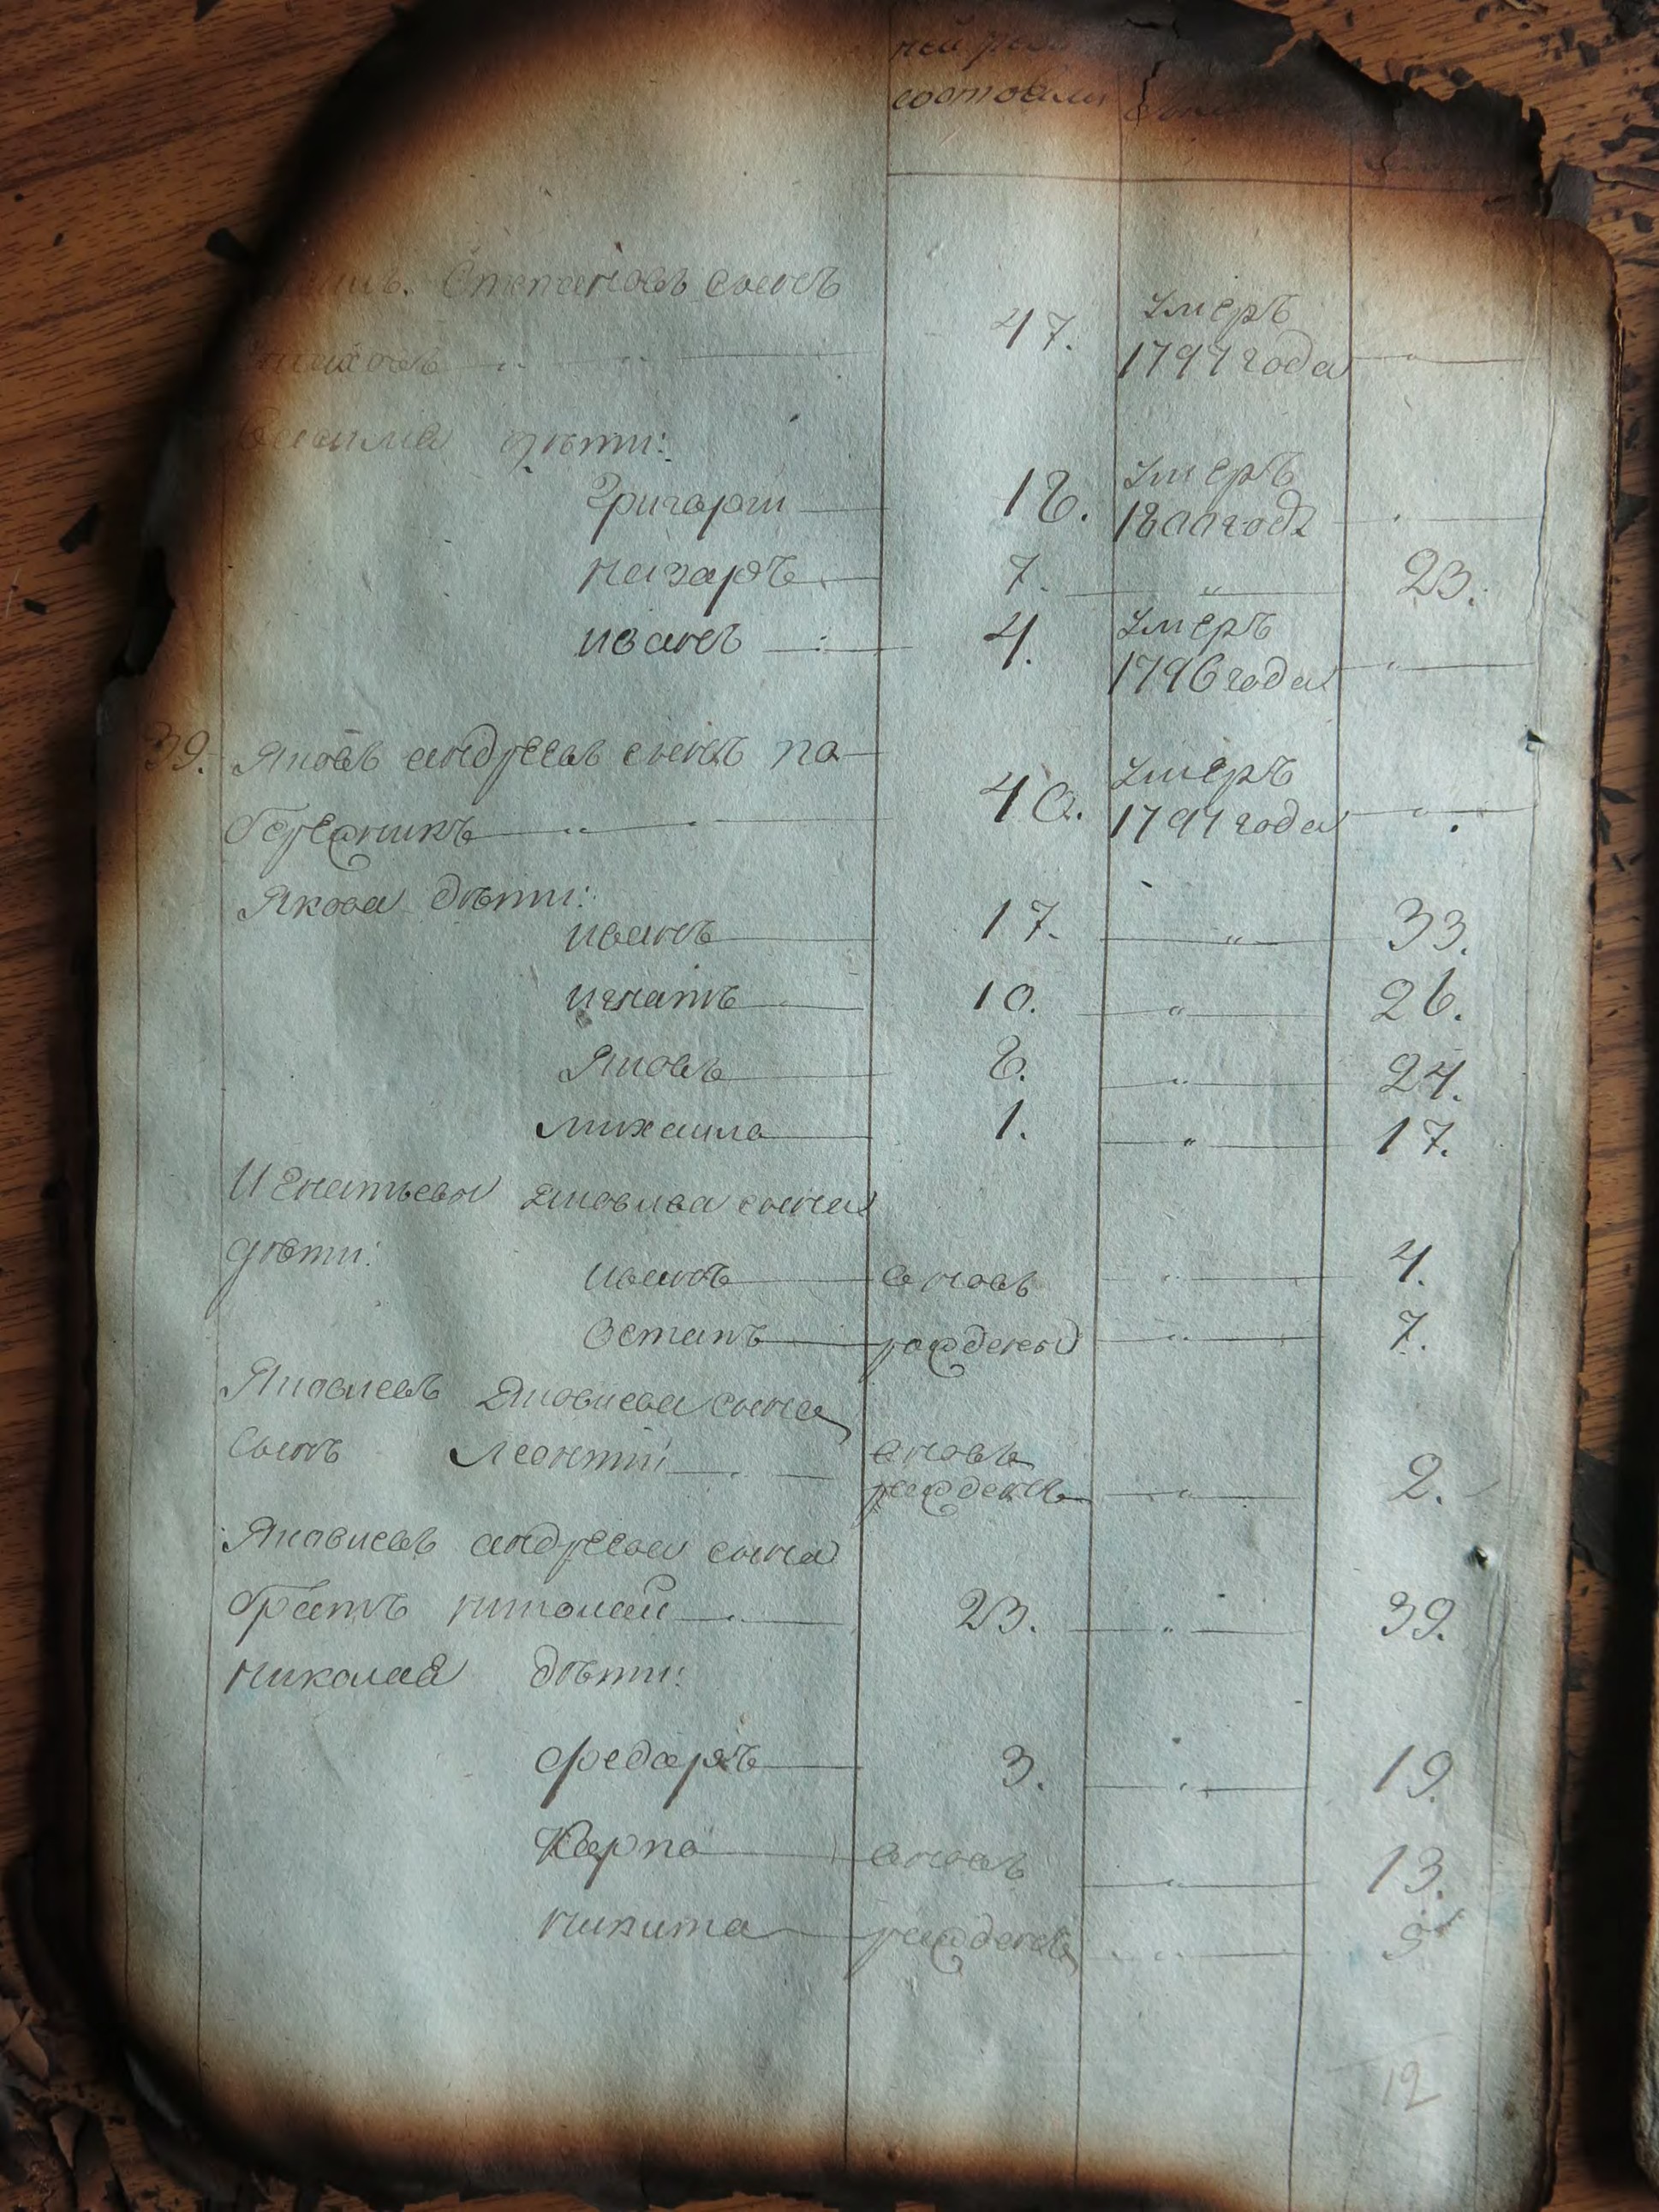 состояли
Степановъ сынъ
47. умеръ
1797 года
дѣти:
Григорiй 18. умеръ
1800 года
Назаръ 7. 23.
Иванъ 4. умеръ
1796 года
39. Яковъ Андреевъ сынъ По-
бережникъ 40. умеръ
1797 года
Якова дѣти:
Иванъ 17. 33.
Игнатъ 10. 26.
Яковъ 8. 24.
Михаила 1. 17.
Игнатьевы Яковлева сына
дѣти:
Иванъ вновь 4.
Остапъ рождены 7.
Яковлевъ Яковлева сына
сынъ Леонтiй вновь
рожденъ 2.
Яковлевъ Андреева сына
братъ Николай 23. 39.
Николая дѣти:
Федоръ 3. 19.
Карпо вновь 13.
Никита рожденъ 5
12